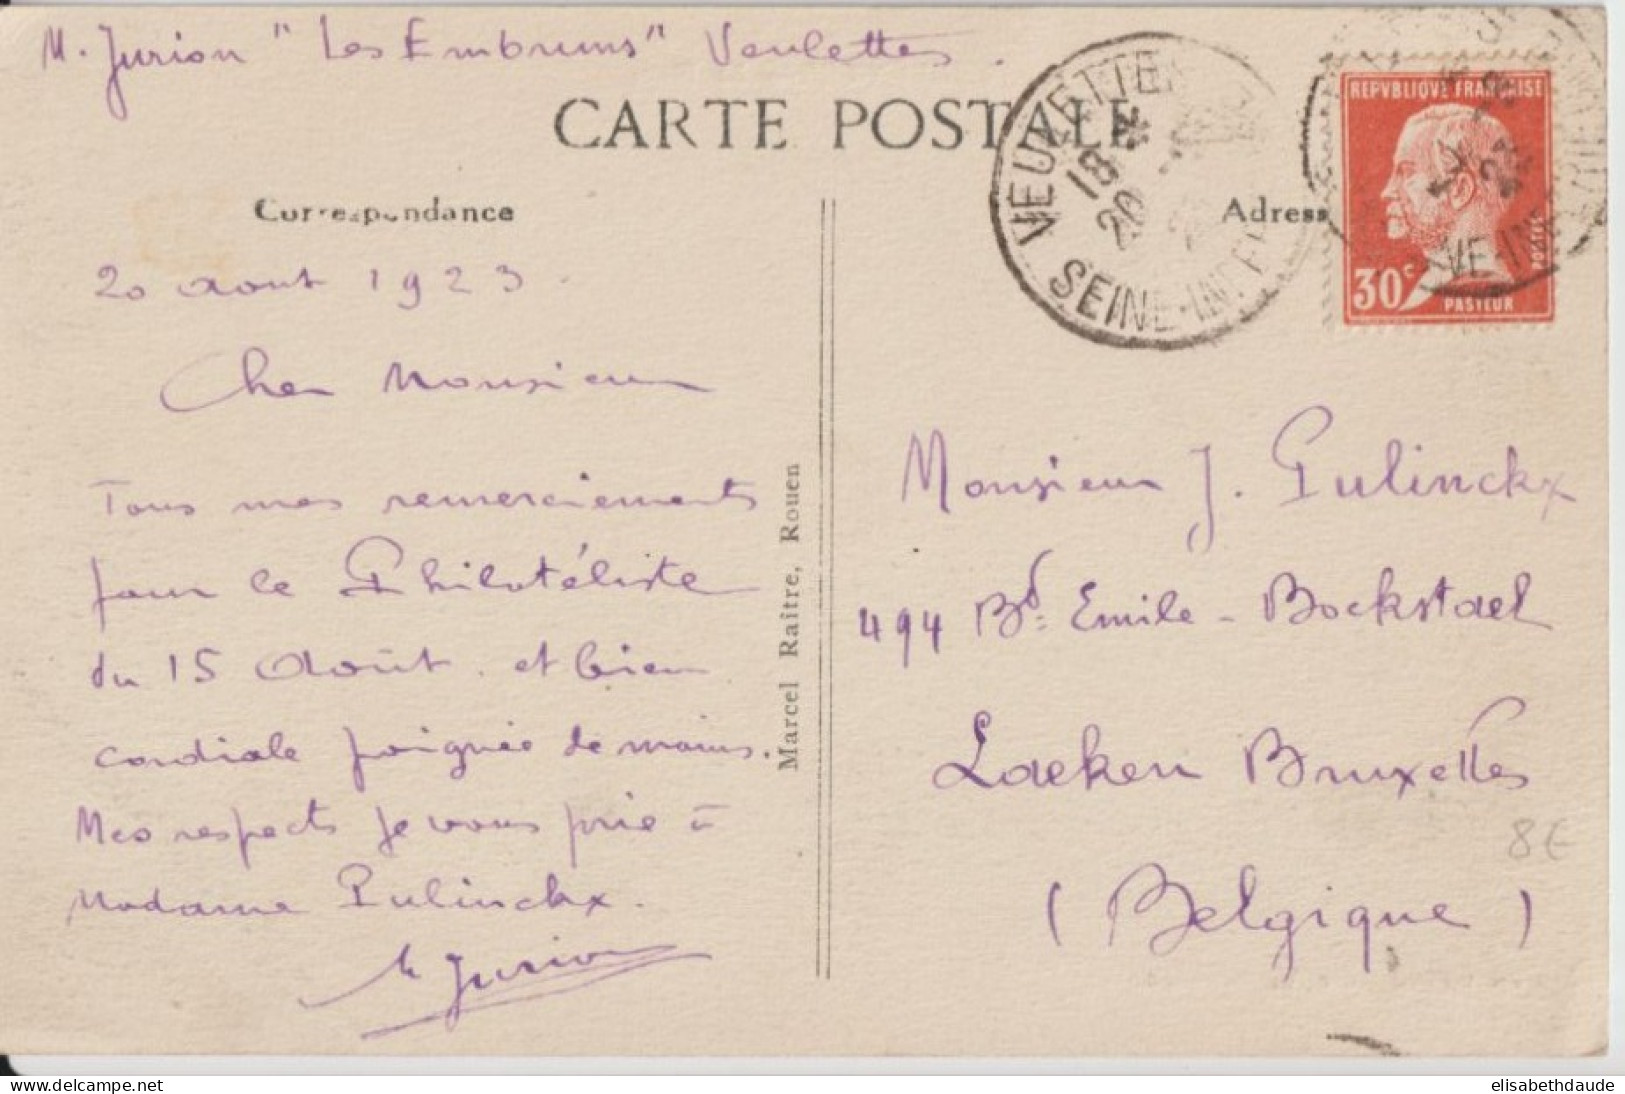 M. Jurion "Les Embruns" Veulettes.
CARTE POSTALE
Correspondance
Adress
VEULETTES
18
20
SEINE-INF
REPVBLIQVE FRANÇAISE
POSTES
30c
PASTEUR
20 Aout 1923.
Cher Monsieur
Tous mes remerciements
pour le Philatéliste
du 15 Août. et bien
cordiale poignée de mains.
Mes respects je vous prie à
Madame Pulinckx.
M Jurion
Marcel Raître, Rouen
Monsieur J. Pulinckx
494 Bd: Emile-Bockstael
Laeken Bruxelles
(Belgique)
8€
www.delcampe.net
elisabethdaude